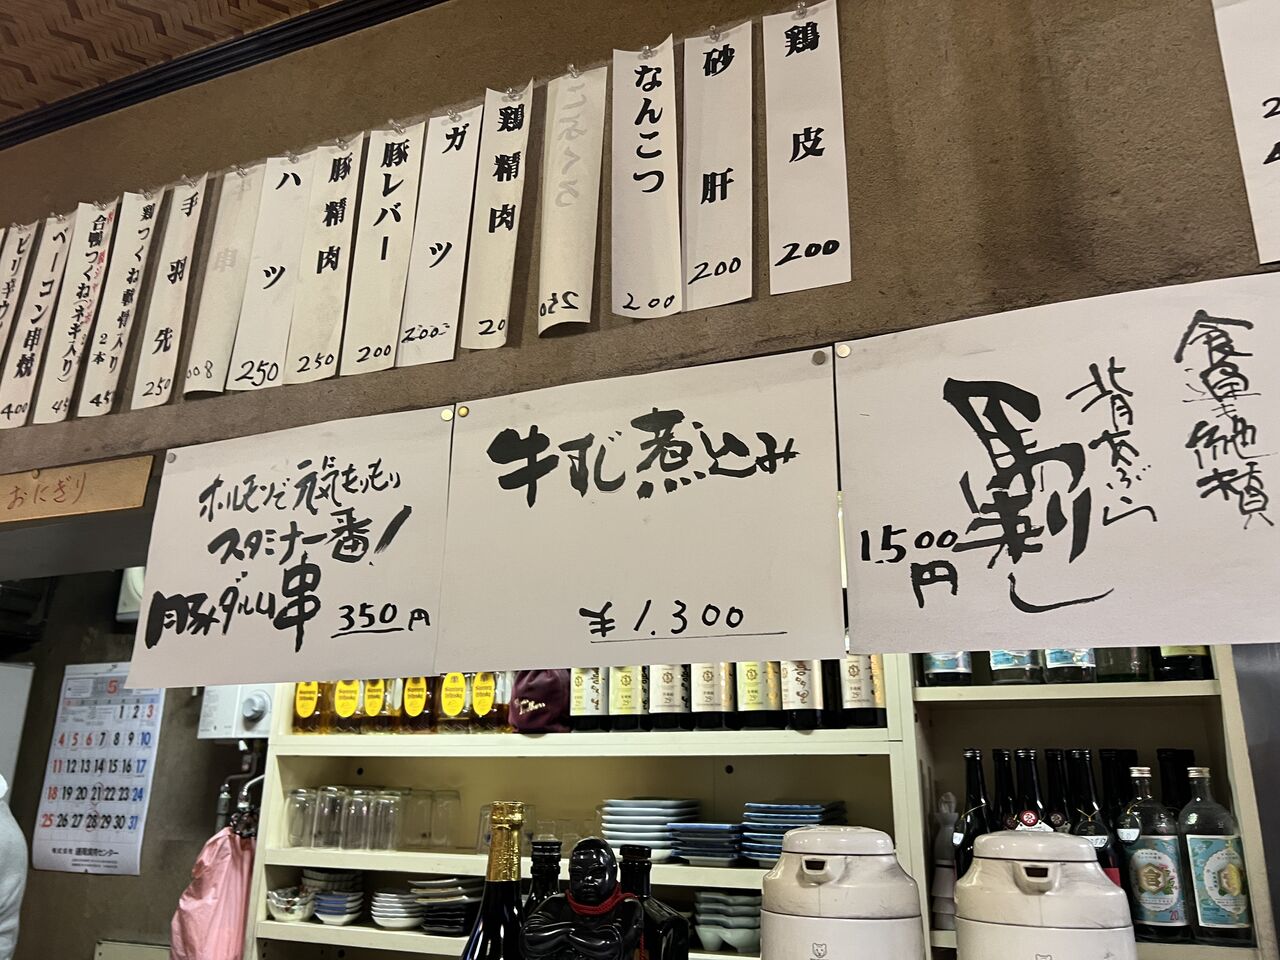 鶏皮
200
砂肝
200
なんこつ
200
こぶくろ
250
鶏精肉
20
ガツ
200
豚レバー
200
豚精肉
250
ハツ
250
手羽先
250
鶏つくね軟骨入り
2本
45
合鴨つくね(ネギ入り)
45
ベーコン串焼
400
ピリ辛ウ
おにぎり
背あぶら
馬刺し
1.500円
牛すじ煮込み
¥1.300
ホルモンで元気もりもり
スタミナ一番!
豚ダルム串 350円
5
1 2 3
4 5 6 7 8 9 10
11 12 13 14 15 16 17
18 19 20 21 22 23 24
25 26 27 28 29 30 31